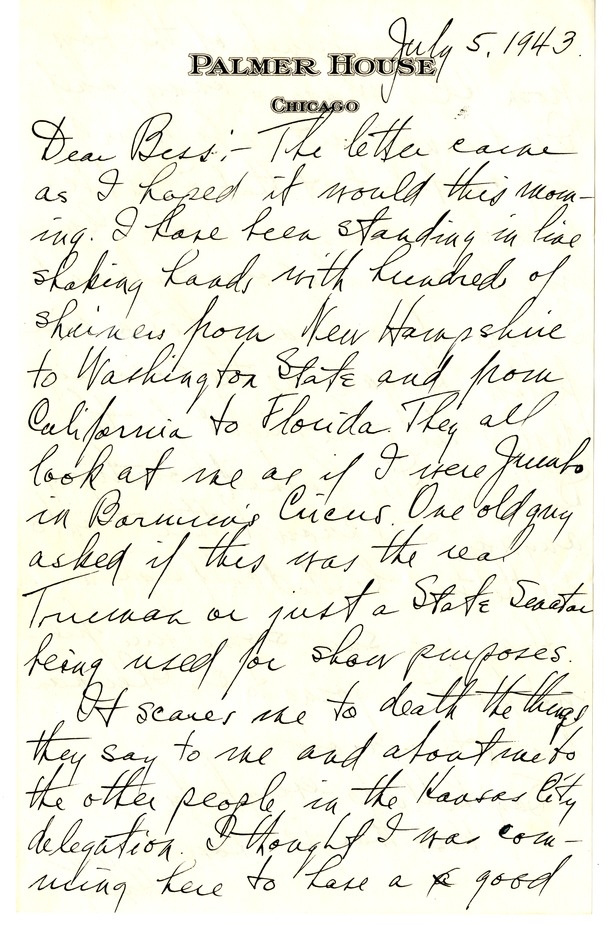 July 5, 1943.
PALMER HOUSE
CHICAGO
Dear Bess:- The letter came
as I hoped it would this morn-
ing. I have been standing in line
shaking hands with hundreds of
shriners from New Hampshire
to Washington State and from
California to Florida. They all
look at me as if I were Jumbo
in Barnum's Circus. One old guy
asked if this was the real
Truman or just a State Senator
being used for show purposes.
It scares me to death the things
they say to me and about me to
the other people in the Kansas City
delegation. I thought I was com-
ming here to have a good